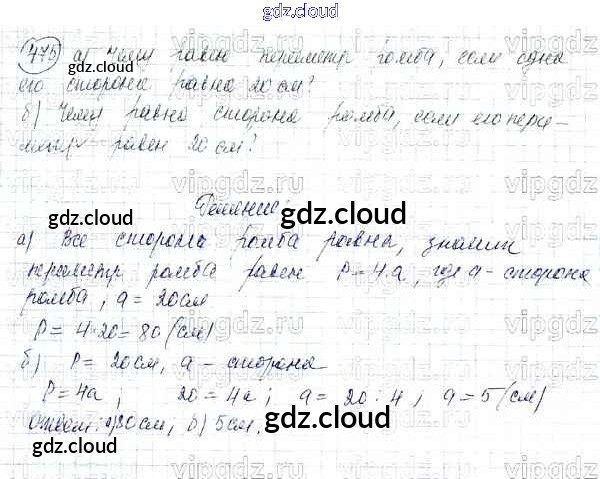 gdz.cloud
475 а) Чему равен периметр ромба, если одна
его сторона равна 20 см?
б) Чему равна сторона ромба, если его пери-
метр равен 20 см?
Решение:
а) Все стороны ромба равны, значит
периметр ромба равен P = 4a, где a - сторона
ромба, a = 20 см
P = 4·20 = 80 (см)
б) P = 20 см, a - сторона
P = 4a; 20 = 4a; a = 20 : 4; a = 5 (см)
Ответ: а) 80 см, б) 5 см.
gdz.cloud
vipgdz.ru